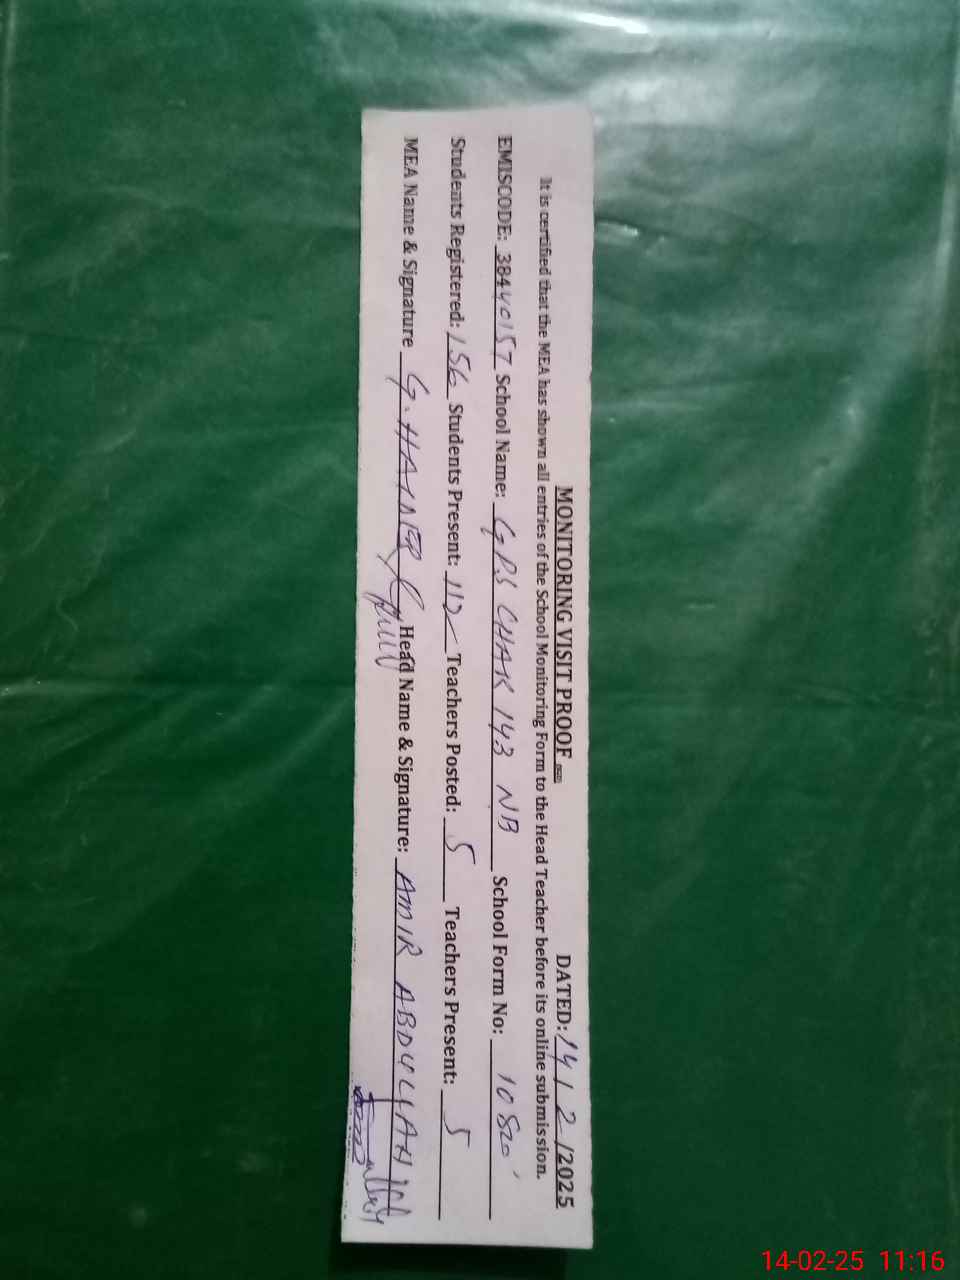 MONITORING VISIT PROOF DATED: 14 / 2 /2025
It is certified that the MEA has shown all entries of the School Monitoring Form to the Head Teacher before its online submission.
EMISCODE: 38440157 School Name: G.P.S CHAK 143 NB School Form No: 10820
Students Registered: 156 Students Present: 112 Teachers Posted: 5 Teachers Present: 5
MEA Name & Signature G. HAIDER Head Name & Signature: AMIR ABDULLAH
14-02-25 11:16